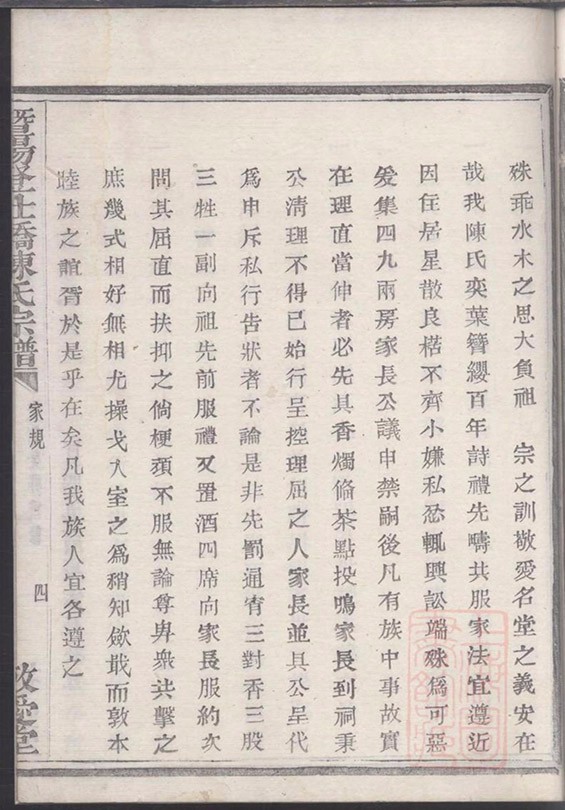 殊乖水木之思大負祖　宗之訓敬愛名堂之義安在
哉我陳氏奕葉簪纓百年詩禮先疇共服家法宜遵近
因住居星散良楛不齊小嫌私忿輒興訟端殊爲可惡
爰集四九兩房家長公議申禁嗣後凡有族中事故實
在理直當伸者必先具香燭脩茶點投鳴家長到祠秉
公清理不得已始行呈控理屈之人家長並具公呈代
爲申斥私行告狀者不論是非先罰通宵三對香三股
三牲一副向祖先前服禮又置酒四席向家長服約次
問其屈直而扶抑之倘梗頑不服無論尊卑衆共擊之
庶幾式相好無相尤操戈入室之爲稍知斂戢而敦本
睦族之誼胥於是乎在矣凡我族人宜各遵之
暨陽
橋陳氏宗譜
家規
四
敬愛堂